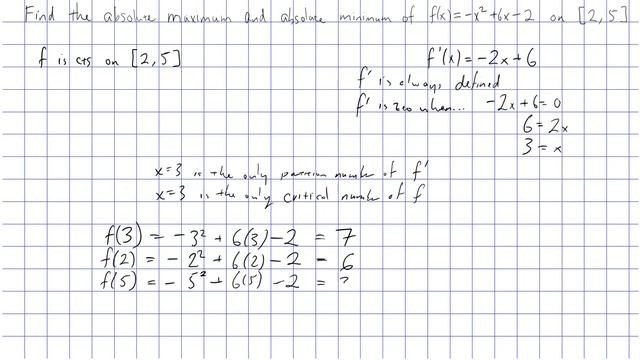 Find the absolute maximum and absolute minimum of f(x)=-x²+6x-2 on [2,5]
f is cts on [2,5]
f'(x)=-2x+6
f' is always defined
f' is zero when... -2x+6=0
6=2x
3=x
x=3 is the only partition number of f'
x=3 is the only critical number of f
f(3) = -3² + 6(3)-2 = 7
f(2) = -2² + 6(2)-2 = 6
f(5) = -5² + 6(5)-2 =